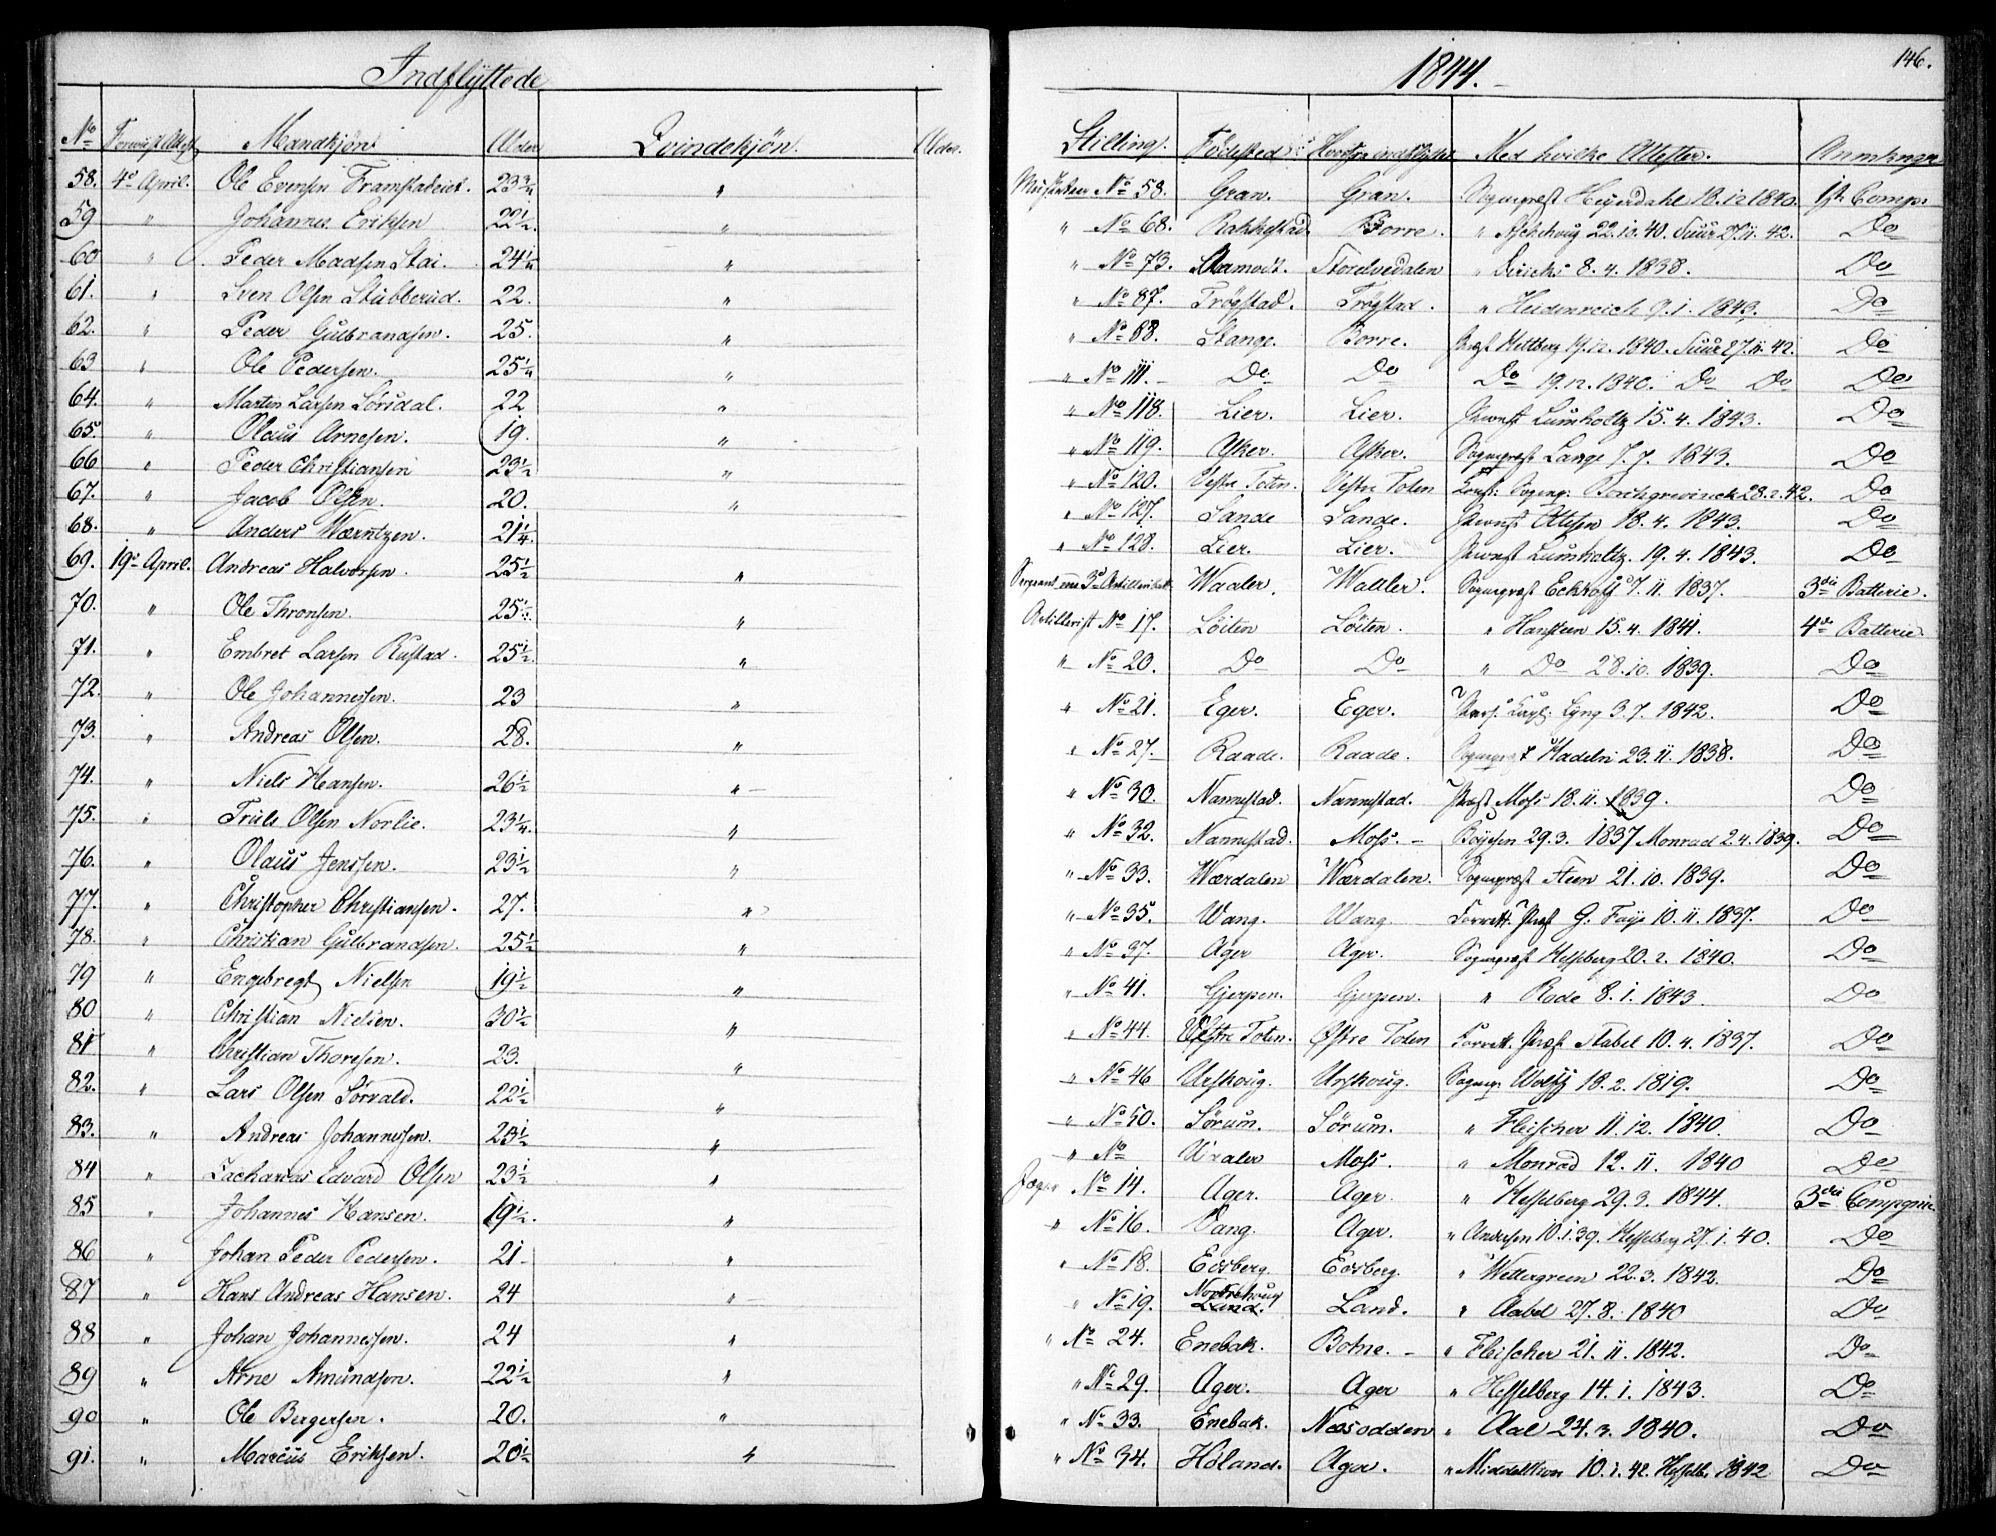 Indflyttede
1844.
146.
No Mandkjön. Alder Qvindekjön. Alder. Stilling. Födested Med hvilke Attester.
58. 4de April. Ole Evensen 23 3/4 " No 58. Gran. Gran. Heyerdahl 18.12 1840. Comp.
59 " Johannes Eriksen 22 1/2 " " No 68. Rakkestad. Borre. " 22.12.40. 27.11.42. Do
60 " Peder Madsen Stai. 24 1/4 " " No 73. Aamodt. Storelvedalen " 8.4.1838. Do
61. " Sven Olsen Stubberud. 22. " " No 87. Trögstad. Trögstad. " Heidenreich 9.1.1843. Do
62. " Peder Gulbrandsen. 25. " " No 88. Stange. Borre. 17.12.1840. 27.11.42. Do
63 " Ole Pedersen. 25 1/4 " " No 111. Do Do Do 19.12.1840. Do Do Do
64. " Martin Larsen Lörsdal. 22 " " No 118. Lier. Lier. Lumholtz 15.4.1843. Do
65. " Olaus Arnesen. 19. " " No 119. Asker. Asker. Sognepræst Lange 7.7.1843. Do
66 " Peder Christiansen 23 1/2 " " No 120. Vestre Toten. Vestre Toten Borchgrevinck 28.2.42. Do
67. " Jacob Olsen. 20. " " No 127. Sande Sande. Ottesen 18.4.1843. Do
68. " Anders Wærntzen. 21 1/4. " " No 128. Lier. Lier. Lumholtz. 19.4.1843. Do
69. 19de April. Andreas Halvorsen. 25 1/2 " Waaler. Waaler. Sognepræst 7.11.1837. 3die Batterie.
70. " Ole Thronsen. 25 1/2. " Artillerist No 17. Löiten Löiten. " Hansteen 15.4.1841. 4de Batterie.
71. " Embret Larsen Rustad. 25 1/2. " " No 20. Do Do " Do 28.10.1839. Do
72. " Ole Johannessen. 23 " " No 21. Eger. Eger. Lyng 3.7.1842. Do
73. " Andreas Olsen. 28. " " No 27. Raade. Raade. Sognepræst Hadeln 23.11.1838. Do
74. " Niels Hansen. 26 1/2 " " No 30. Nannestad. Nannestad. Præst Moss 18.11.1839. Do
75. " Truls Olsen Norlie. 23 1/4. " " No 32. Nannestad. Moss. Boysen 29.3.1837 Monrad 2.4.1839. Do
76. " Olaus Jenssen. 23 1/2 " " No 33. Wærdalen Wærdalen. Sognepræst Steen 21.10.1839. Do
77. " Christopher Christiansen. 27. " " No 35. Wang. Wang. Præst G. Faye 10.11.1837. Do
78. " Christian Gulbrandsen. 25 1/2 " " No 37. Ager Ager. Sognepræst Hesselberg 20.2.1840. Do
79 " Engebregt Nielsen 19 1/2 " " No 41. Gjerpen. Gjerpen. " Rode 8.1.1843. Do
80 " Christian Nielsen. 30 1/2 " " No 44. Toten. Östre Toten Præst Stabel 10.4.1837. Do
81 " Christian Thoresen. 23. " " No 46 Urskoug. Urskoug. Sognep. Wolff 18.2.1819. Do
82. " Lars Olsen Sörvald. 22 1/2 " " No 50. Sörum. Sörum. " Fleischer 11.12.1840. Do
83. " Andreas Johannessen. 23 1/2 " " No Waaler Moss. " Monrad 12.11.1840 Do
84 " Zacharias Edvard Olsen 23 1/2 " Jæger No 14. Ager. Ager. " Hesselberg 29.3.1844. 3die Compagnie
85 " Johannes Hansen. 19 1/2. " " No 16. Vang. Ager. " Andersen 10.1.39. Hesselberg 27.1.40. Do
86 " Johan Peder Pedersen. 21 " " No 18. Edsberg. Edsberg. " Wettergreen 22.3.1842. Do
87 " Hans Andreas Hansen. 24 " " No 19. Norderhoug Land. Land. " Aabel 27.8.1840 Do
88 " Johan Johannessen. 24 " " No 24. Enebak. Botne. " Fleischer 21.11.1842. Do
89 " Arne Amundsen. 22 1/2 " " No 29. Ager. Ager " Hesselberg 14.1.1843. Do
90 " Ole Bergersen. 20. " " No 33. Enebak. Næsodden " Aal 24.3.1840. Do
91. " Marcus Eriksen. 20 1/2 " " No 34. Höland. Ager. " Middelthon 10.1.42. Hesselb. 1842 Do